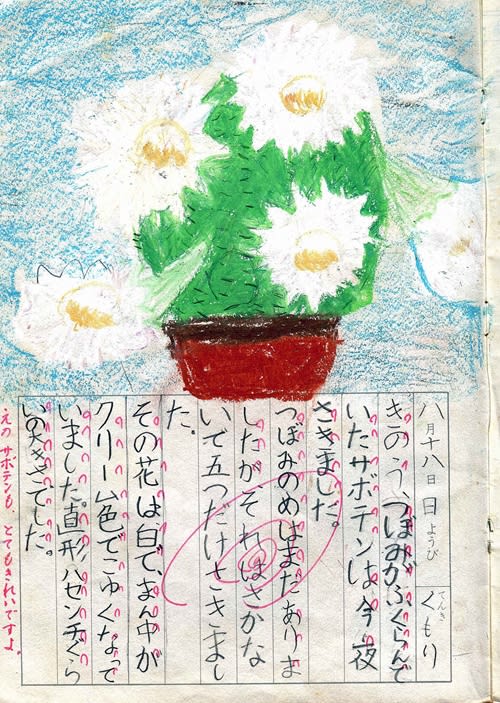 八月十八日 ようび てんき くもり
きのう、つぼみがふくらんで
いたサボテンは、今夜
さきました。
つぼみのめはまだありま
したが、それはさかな
いで五つだけさきまし
た。
その花は白で、まん中が
クリーム色でこゆくなって
いました。直形八センチぐら
いの大きさでした。
えの サボテンも、とてもきれいですよ。